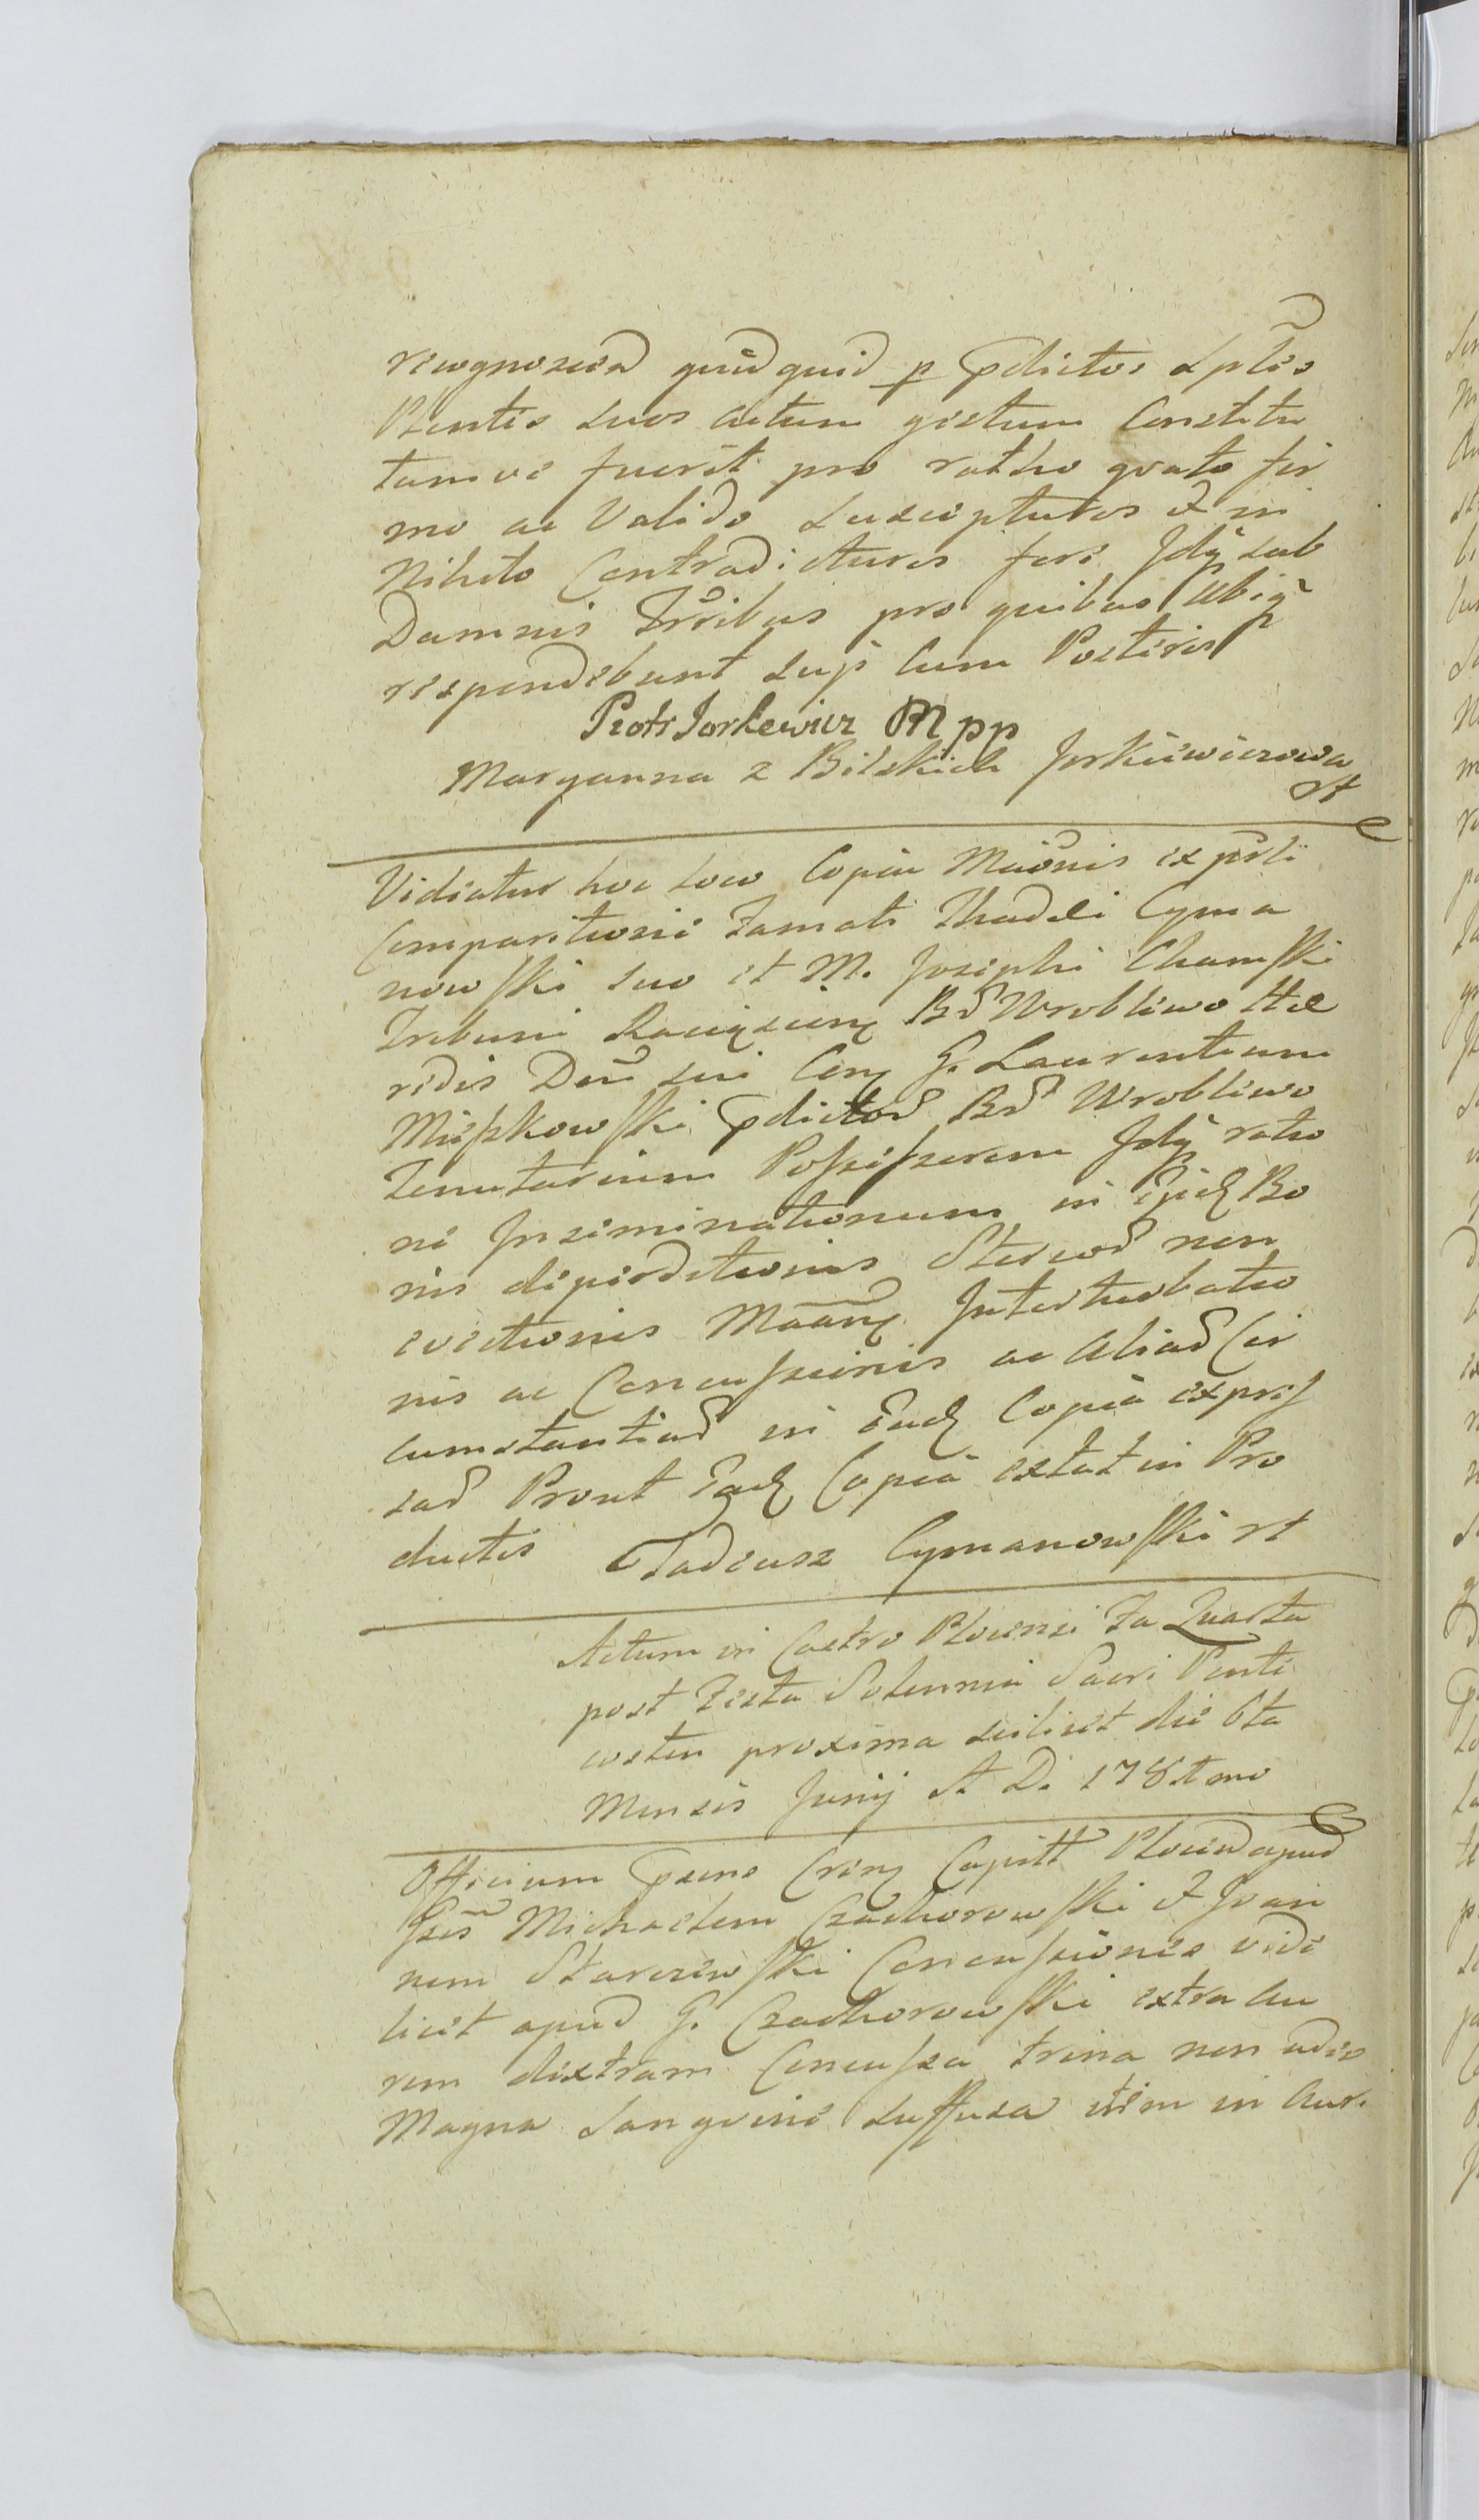 recognoscen quidquid p pdictos Sples
Plentes suos actum gestum Constitu
tumve fuerit pro ratho grato fir
mo ac Valido suscepturos et in
Nihilo Contradicturos fore Idq sub
Damnis Trribus pro quibus Ubiq
respondebunt suj cum Posteris
Piotr Jorkewicz M pp
Maryanna z Bilskich Jorkiewiczowa
rt
Vidiatur hoc loco Copia Maonis ex parte
Comparitione Famati Thadei Cyma
nowski suo et M. Josephi Chamski
Tribuni Raciązien Bd Wroblewo Hæ
redis Dni sui Con G. Laurentium
Mieszkowski pdictod Bd Wroblewo
Tenutarium Possessorem Idq ratio
ne Inseminationum in Iisd Bo
nis deperditionis Stercod non
evectionis Maarg Interturbatio
nis ac Concussionis ac aliad Cir
cumstantiad in Ead Copia expres
sad Prout Ead Copia extat in Pro
ductis Tadeusz Cymanowski rt
Actum in Castro Plocensi Fa Quarta
post Festa Solennia Sacri Pente
costen proxima scilicet die 6ta
Mensis Junij A D. 1781mo
Officium psens Cren Capitt Plocen apud
Gsos Michaelem Czachorowski et Joan
nem Starczewski Concussiones vide
licet apud G. Czachorowski extra au
rem dextram Concussa trina non adeo
Magna Sangvine suffusa item in Aur.